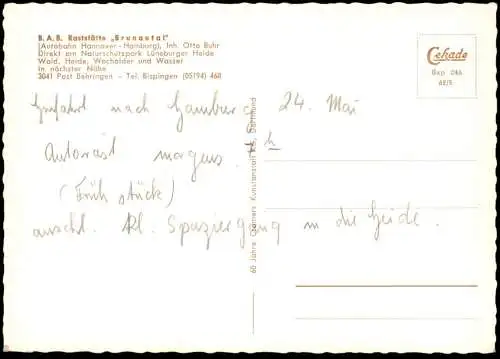 B.A.B. Raststätte „Brunautal"
(Autobahn Hannover - Hamburg), Inh. Otto Buhr
Direkt am Naturschutzpark Lüneburger Heide
Wald, Heide, Wacholder und Wasser
in nächster Nähe
3041 Post Behringen - Tel. Bispingen (05194) 468
Cekade
Bxp 046
68/5
nach Hamburg 24. Mai
Autorast morgens h
(Frühstück)
anschl. kl. Spaziergang in die Heide.
60 Jahre Cramers Kunstanstalt KG, Dortmund